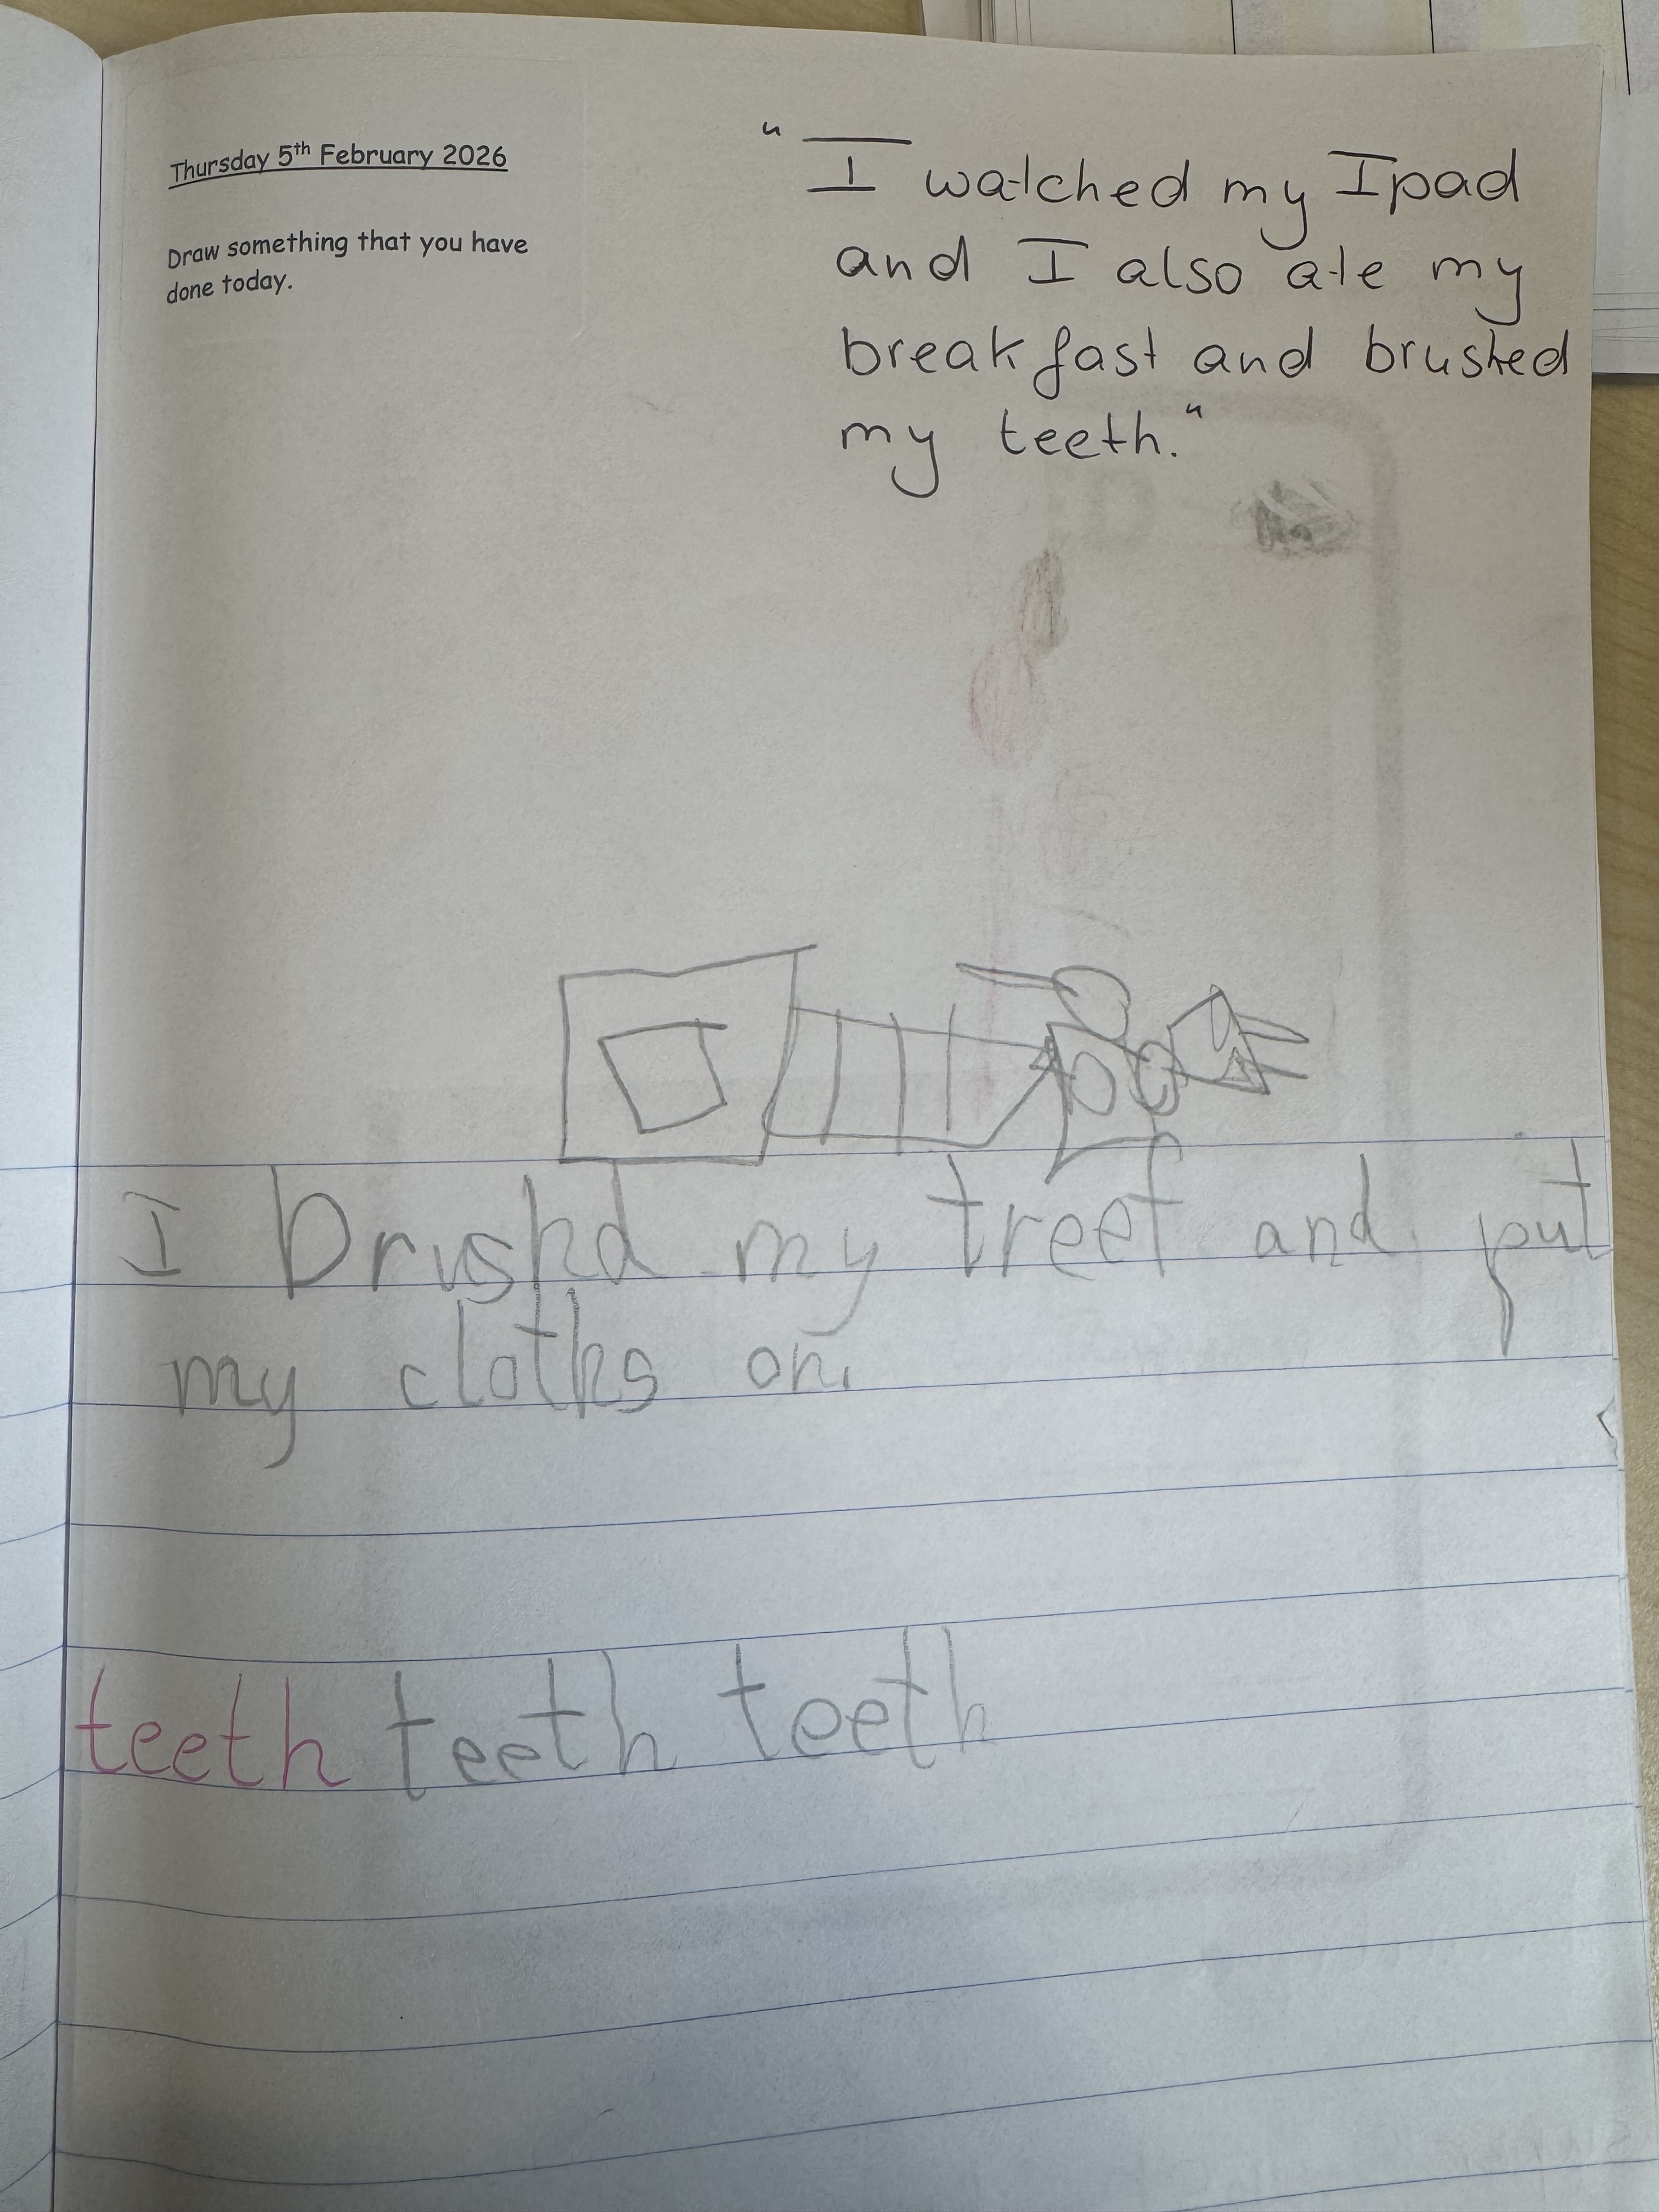 Thursday 5th February 2026
Draw something that you have
done today.
"I watched my Ipad
and I also ate my
breakfast and brushed
my teeth."
I brushd my treet and put
my cloths on.
teeth teeth teeth